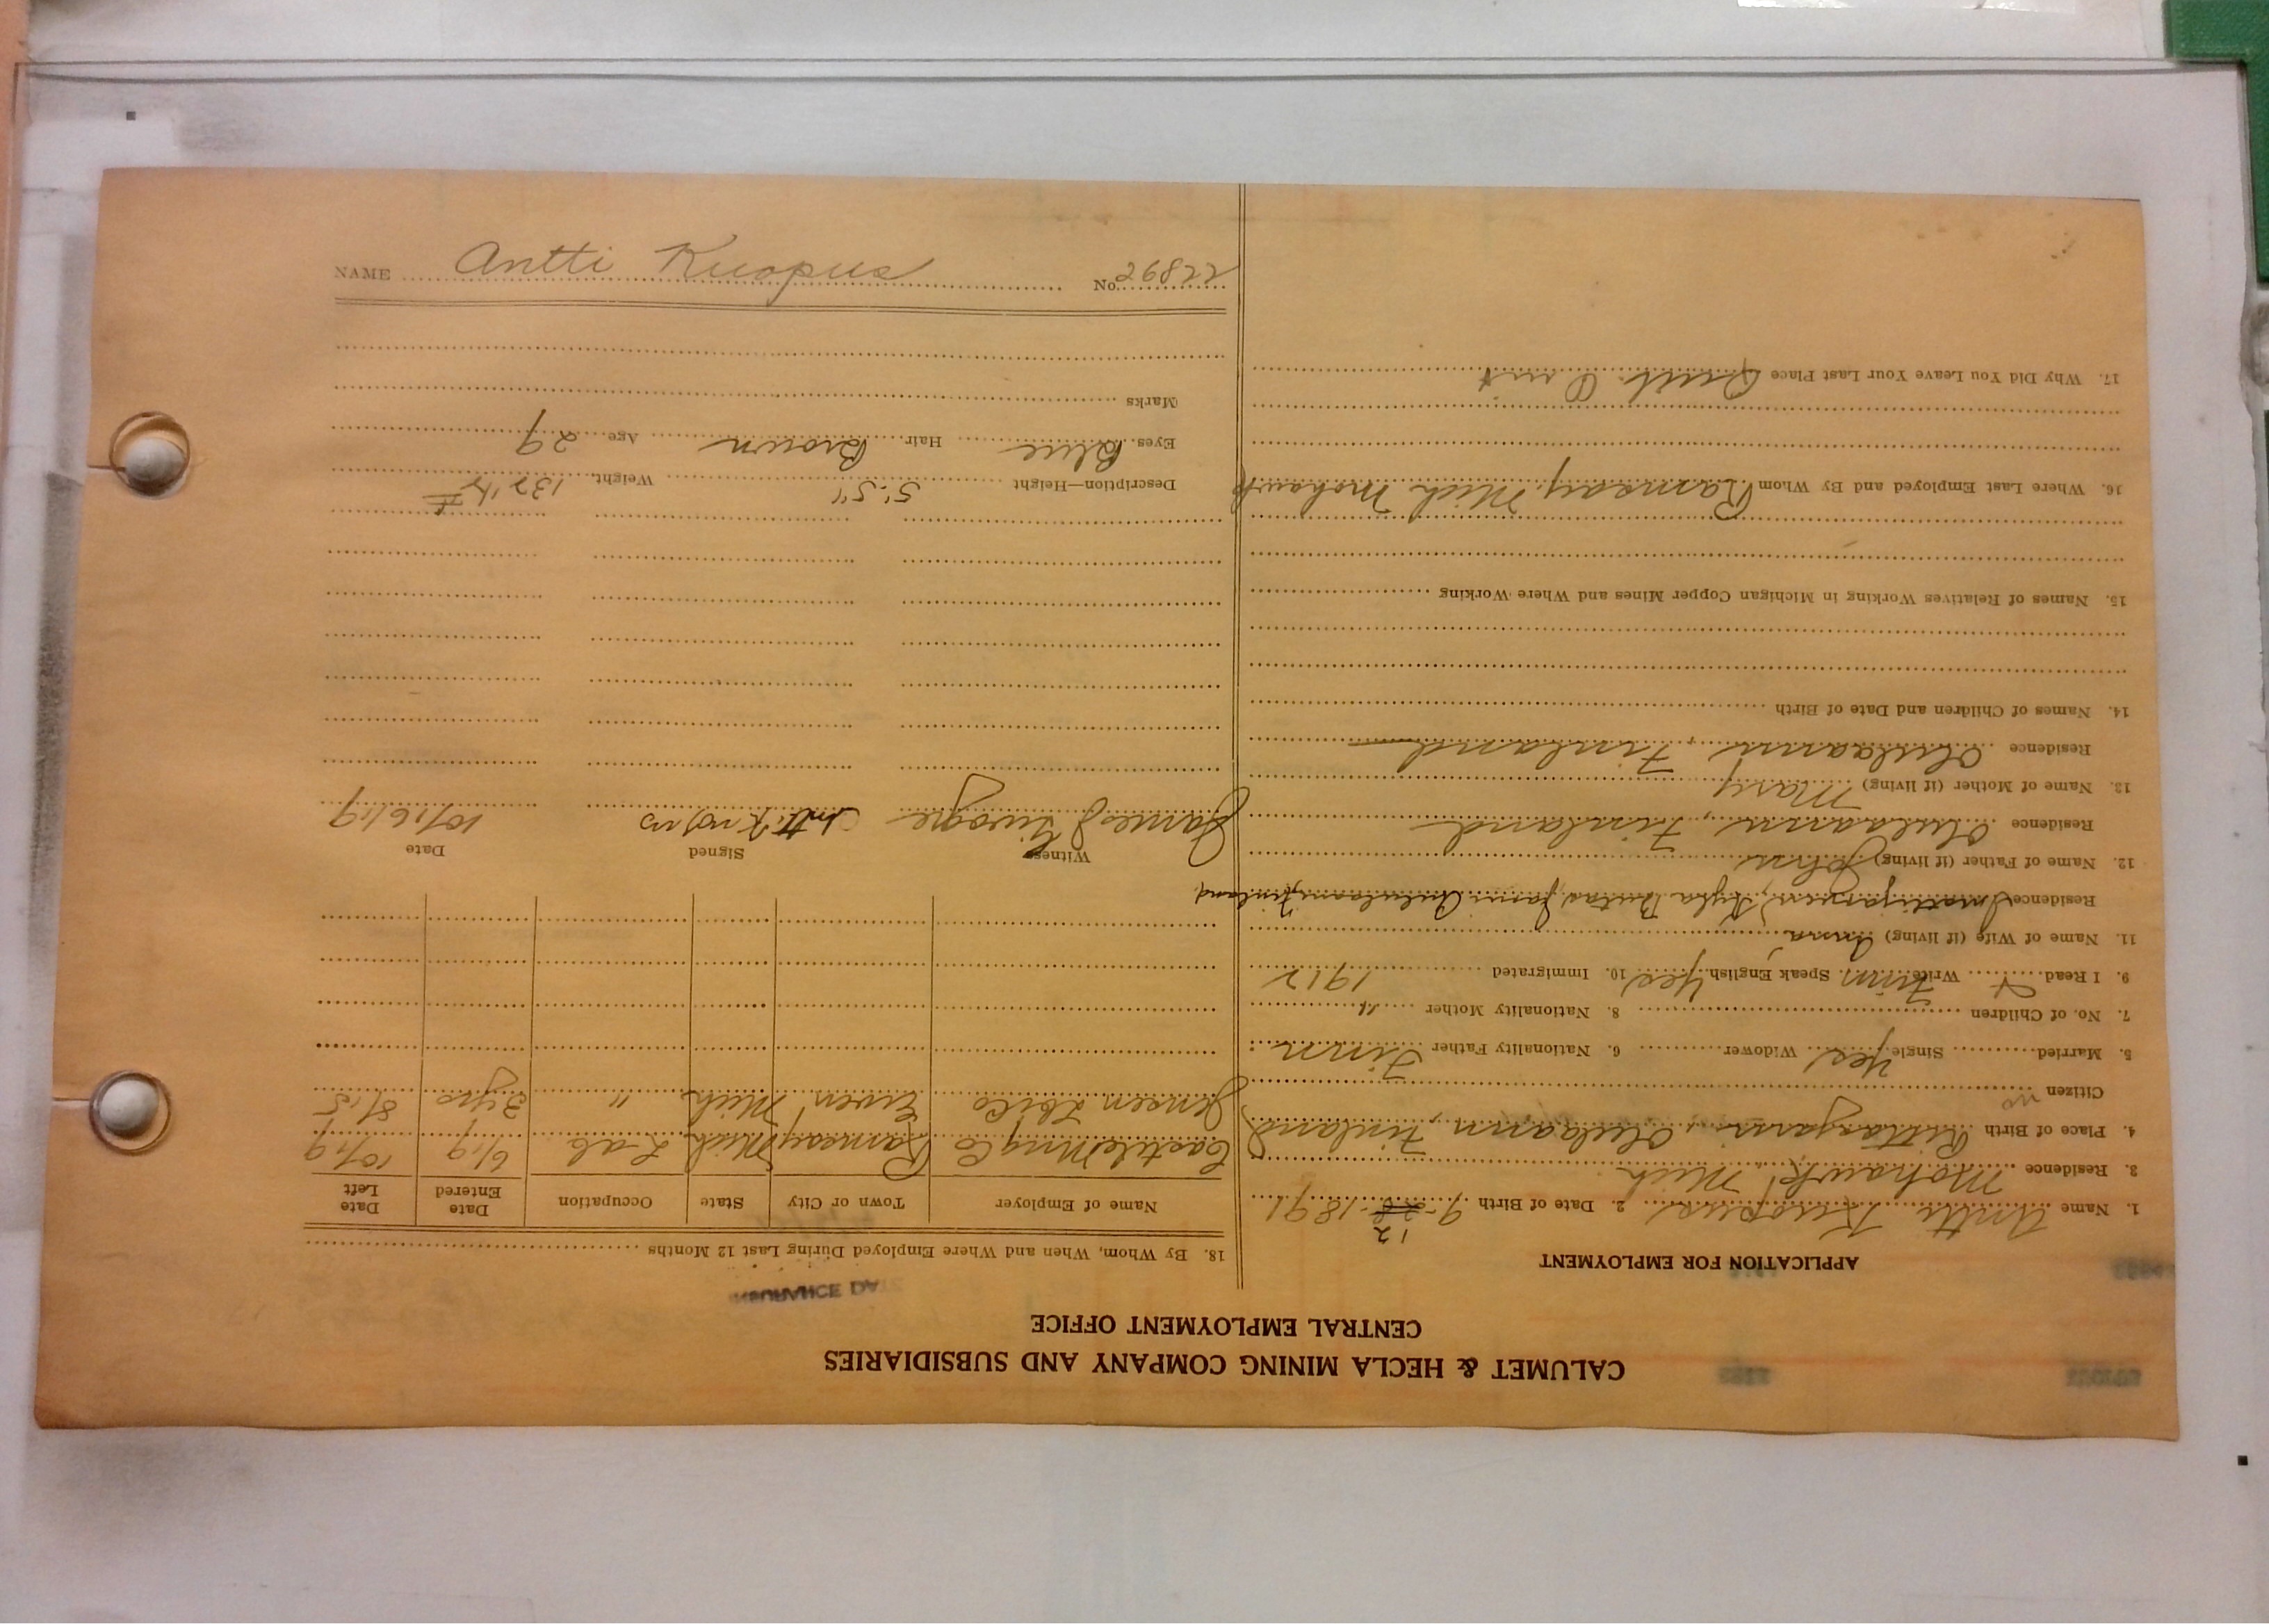 CALUMET & HECLA MINING COMPANY AND SUBSIDIARIES
CENTRAL EMPLOYMENT OFFICE
APPLICATION FOR EMPLOYMENT
1. Name Antti Kuopus 2. Date of Birth 9-12-1891
3. Residence Mohawk, Mich
4. Place of Birth Oulaann, Finland
Citizen no
5. Married Single Yes Widower 6. Nationality Father Finn
7. No. of Children 8. Nationality Mother "
9. I Read Write Finn Speak English Yes 10. Immigrated 1912
11. Name of Wife (if living) Anna
Residence Finland
12. Name of Father (if living) John
Residence Oulaann, Finland
13. Name of Mother (if living) Mary
Residence Oulaann, Finland
14. Names of Children and Date of Birth
15. Names of Relatives Working in Michigan Copper Mines and Where Working
16. Where Last Employed and By Whom Ramsay, Mich Mohawk
17. Why Did You Leave Your Last Place Quit
INSURANCE DATE
18. By Whom, When and Where Employed During Last 12 Months
Name of Employer Town or City State Occupation Date Entered Date Left
Castile Mng Co Ramsay Mich Lab 6/19 10/19
Jensen Lbr Co Ewen Mich " 3 yrs 8/15
Witness Signed Date
James J Antti Kuopus 10/16/19
Description—Height 5'5" Weight 132
Eyes Blue Hair Brown Age 29
Marks
NAME Antti Kuopus No. 22892